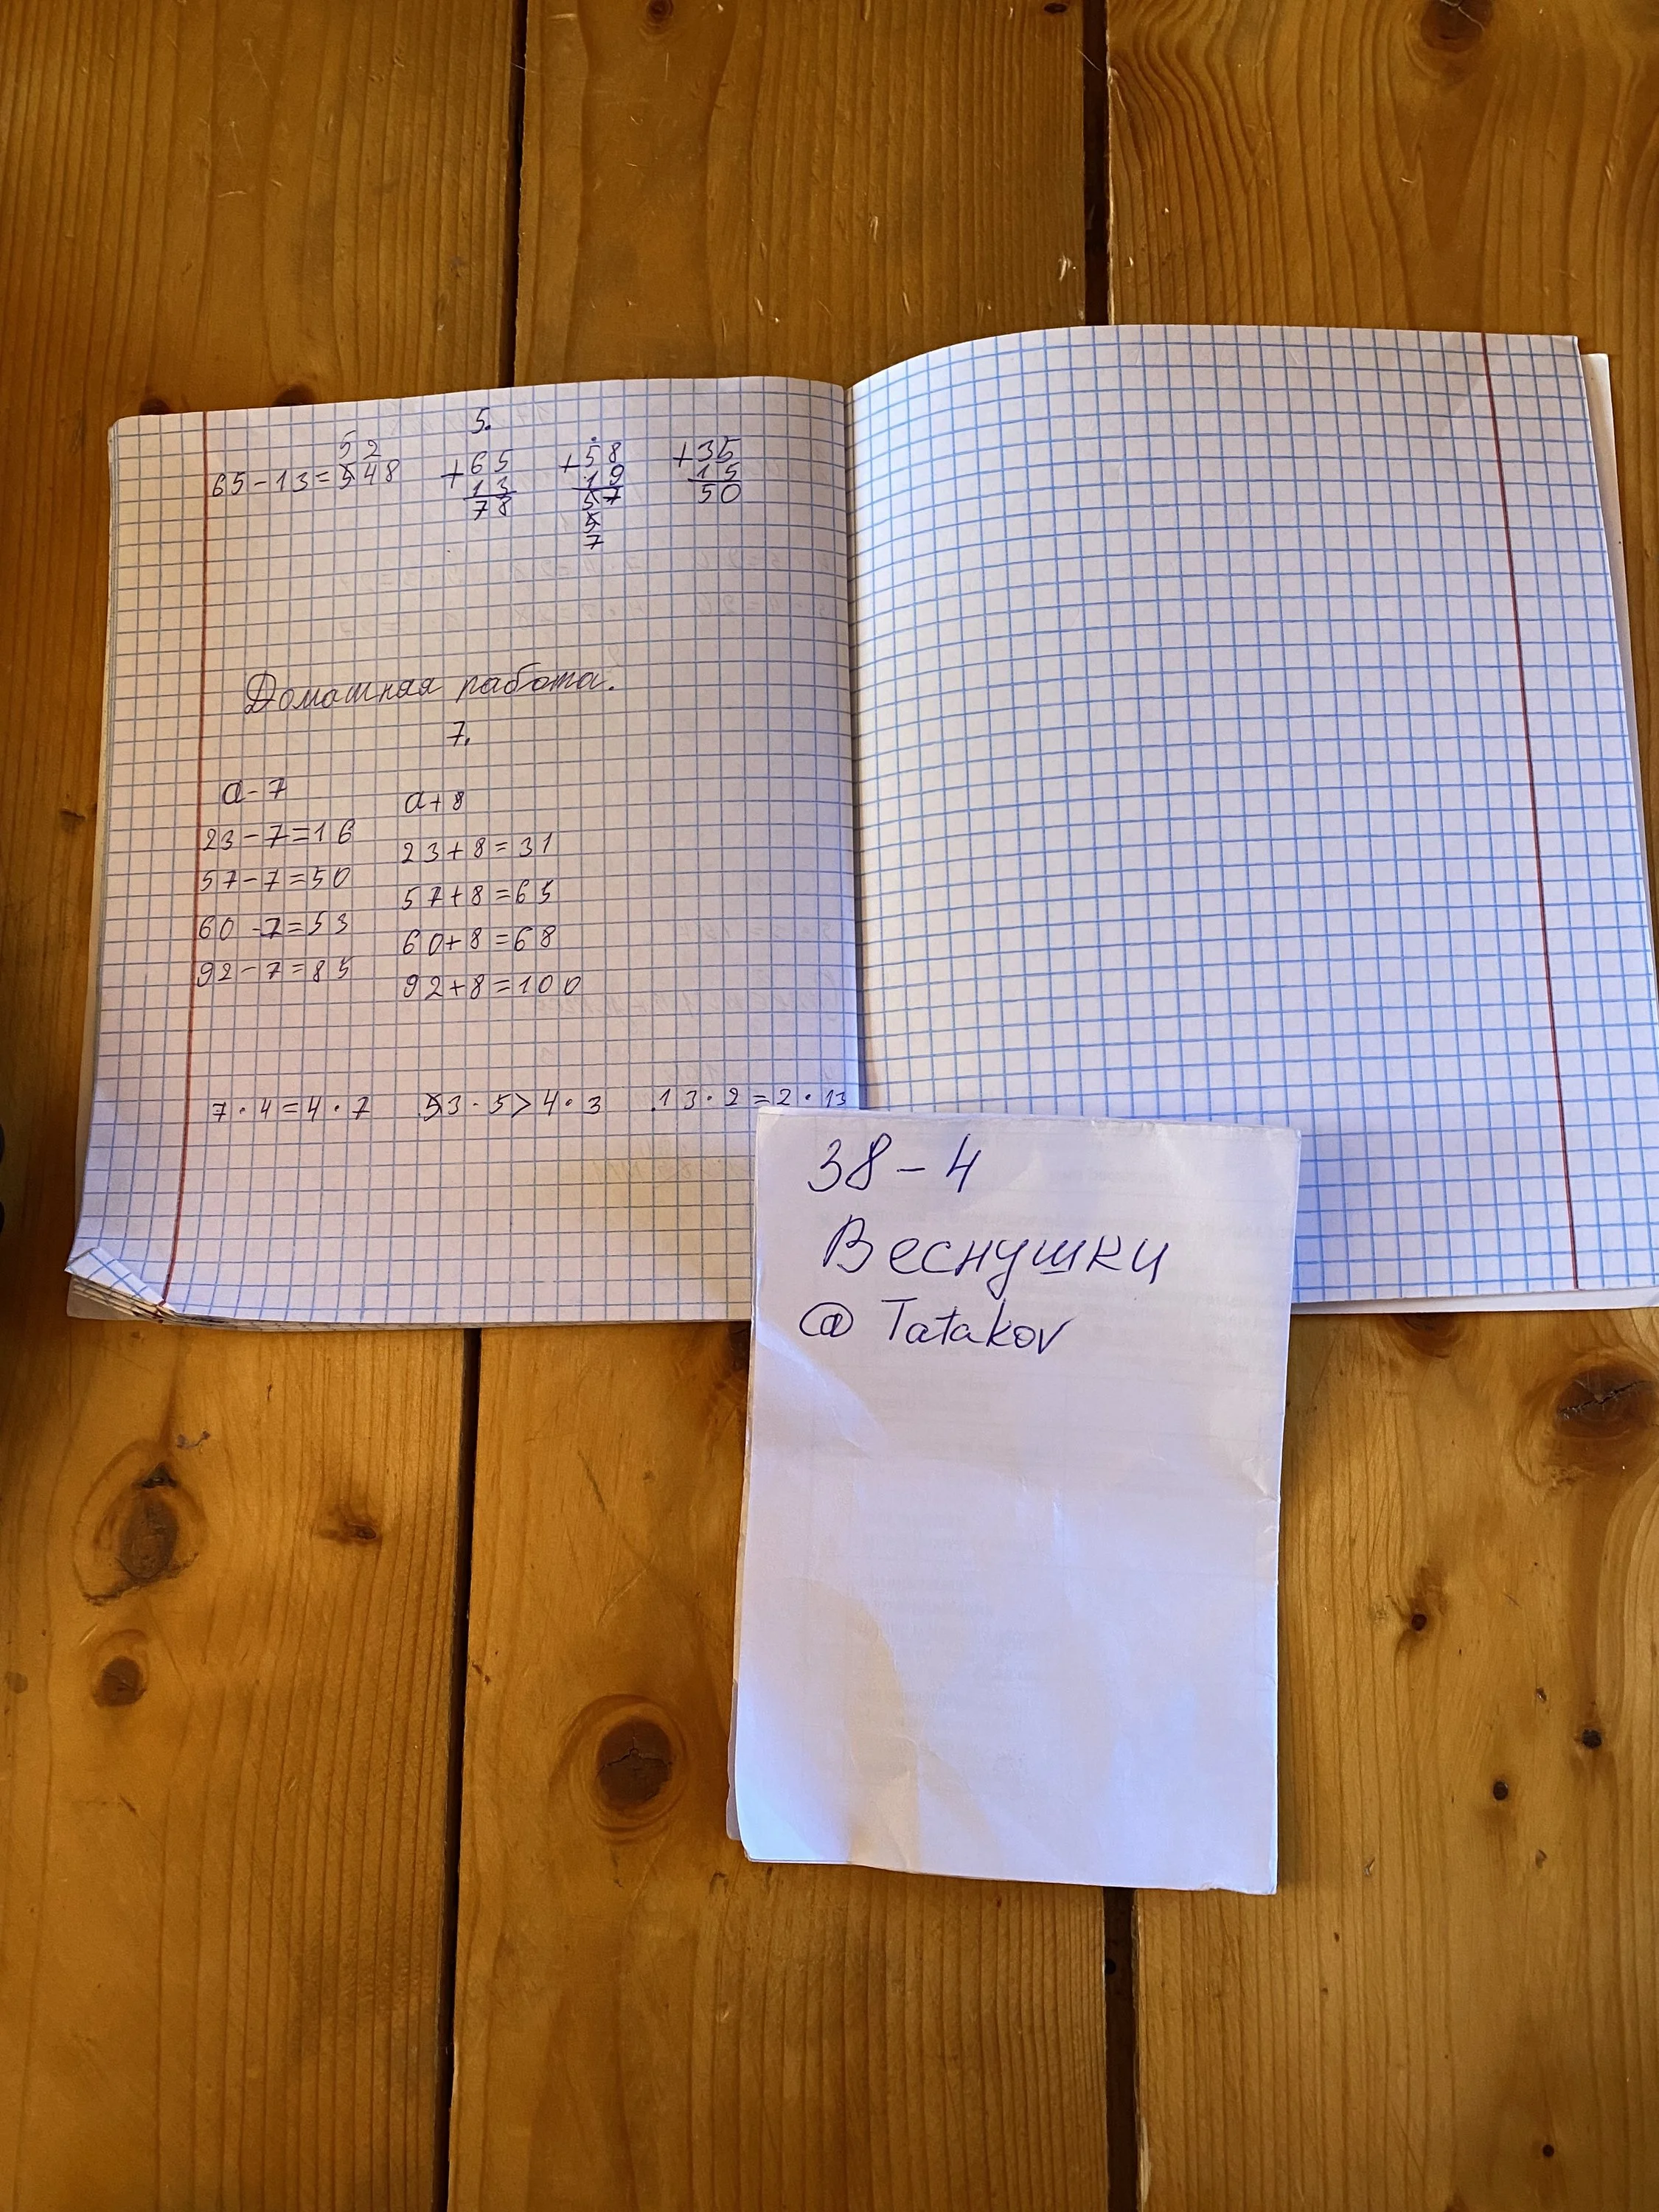 5.
52
65-13=548
+65
13
78
+58
19
57
5
7
+35
15
50
Домашняя работа.
7.
a-7
23-7=16
57-7=50
60-7=53
92-7=85
a+8
23+8=31
57+8=65
60+8=68
92+8=100
7·4=4·7 53·5>4·3 13·2=2·13
38-4
Веснушки
@Tatakov